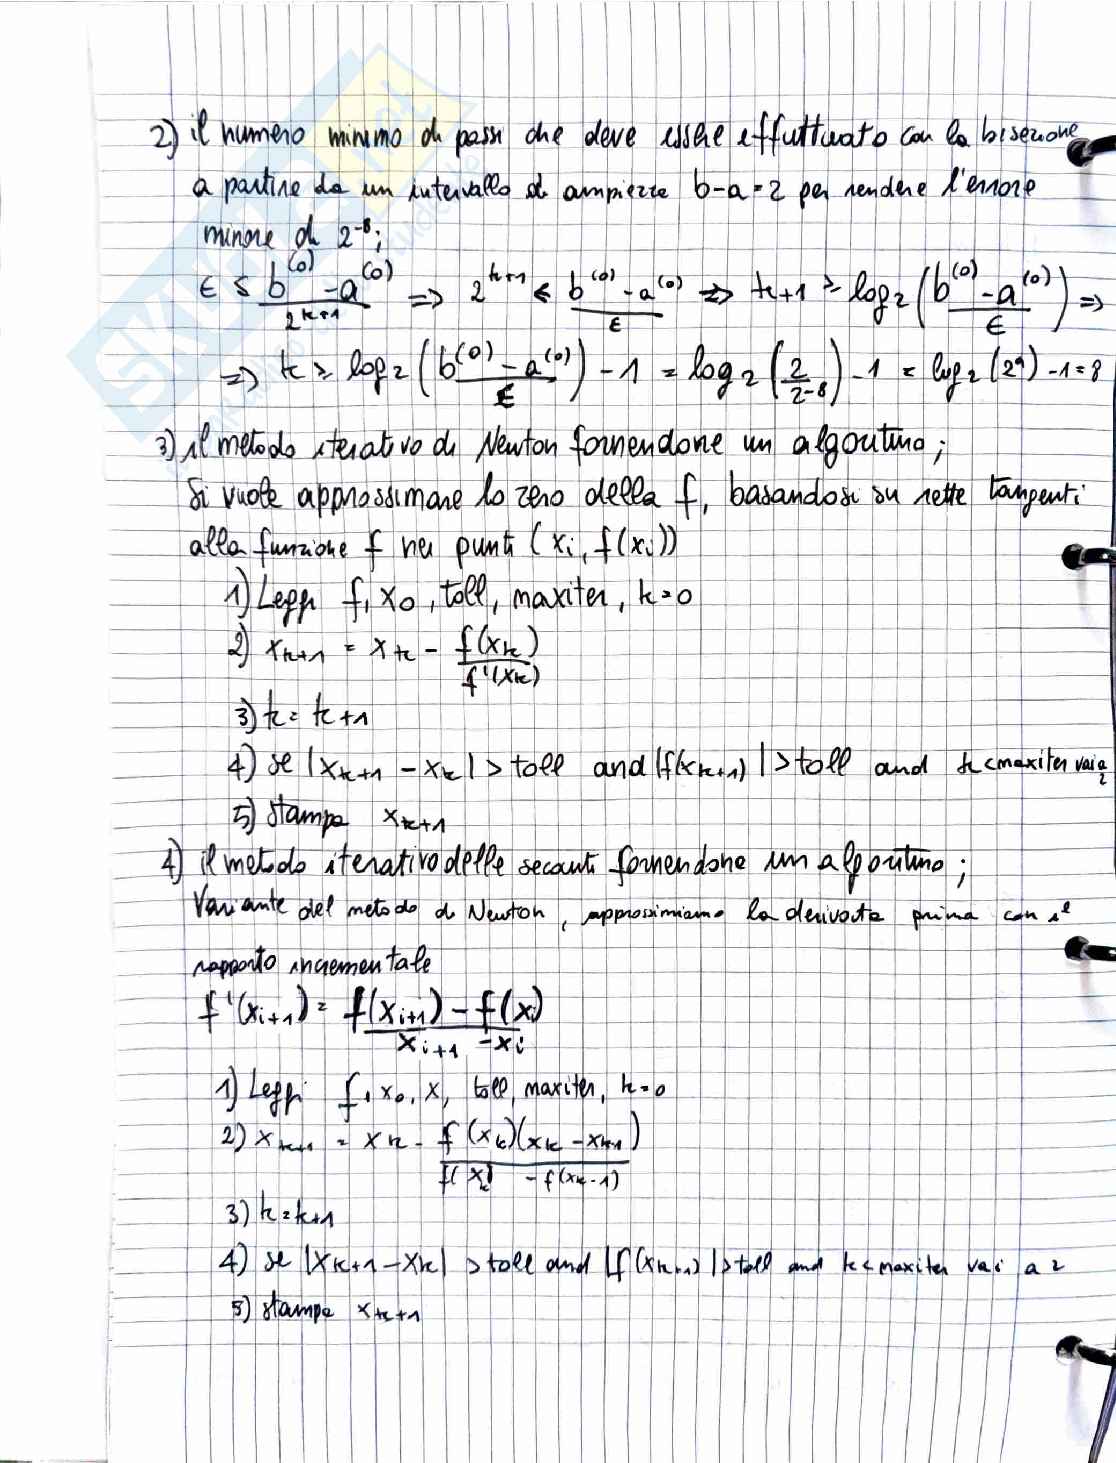 2) il numero minimo di passi che deve essere effuttuato con la bisezione
a partire da un intervallo di ampiezza b-a=2 per rendere l'errore
minore di 2^-8;
ϵ ≤ (b^(0) - a^(0))/2^(k+1) => 2^(k+1) ≤ (b^(0) - a^(0))/ϵ => k+1 ≥ log_2((b^(0) - a^(0))/ϵ) =>
=> k ≥ log_2((b^(0) - a^(0))/ϵ) - 1 = log_2(2/2^-8) - 1 = log_2(2^9) - 1 = 8
3) il metodo iterativo di Newton fornendone un algoritmo;
Si vuole approssimare lo zero della f, basandosi su rette tangenti
alla funzione f nei punti (x_i, f(x_i))
1) Leggi f, x_0, toll, maxiter, k=0
2) x_(k+1) = x_k - f(x_k)/f'(x_k)
3) k = k+1
4) se |x_(k+1) - x_k| > toll and |f(x_(k+1))| > toll and k<maxiter vai a 2
5) stampa x_(k+1)
4) il metodo iterativo delle secanti fornendone un algoritmo;
Variante del metodo di Newton, approssimiamo la derivata prima con il
rapporto incrementale
f'(x_(i+1)) = (f(x_(i+1)) - f(x_i))/(x_(i+1) - x_i)
1) Leggi f, x_0, x, toll, maxiter, k=0
2) x_(k+1) = x_k - f(x_k)(x_k - x_(k-1))/(f(x_k) - f(x_(k-1)))
3) k=k+1
4) se |x_(k+1) - x_k| > toll and |f(x_(k+1))| > toll and k<maxiter vai a 2
5) stampa x_(k+1)